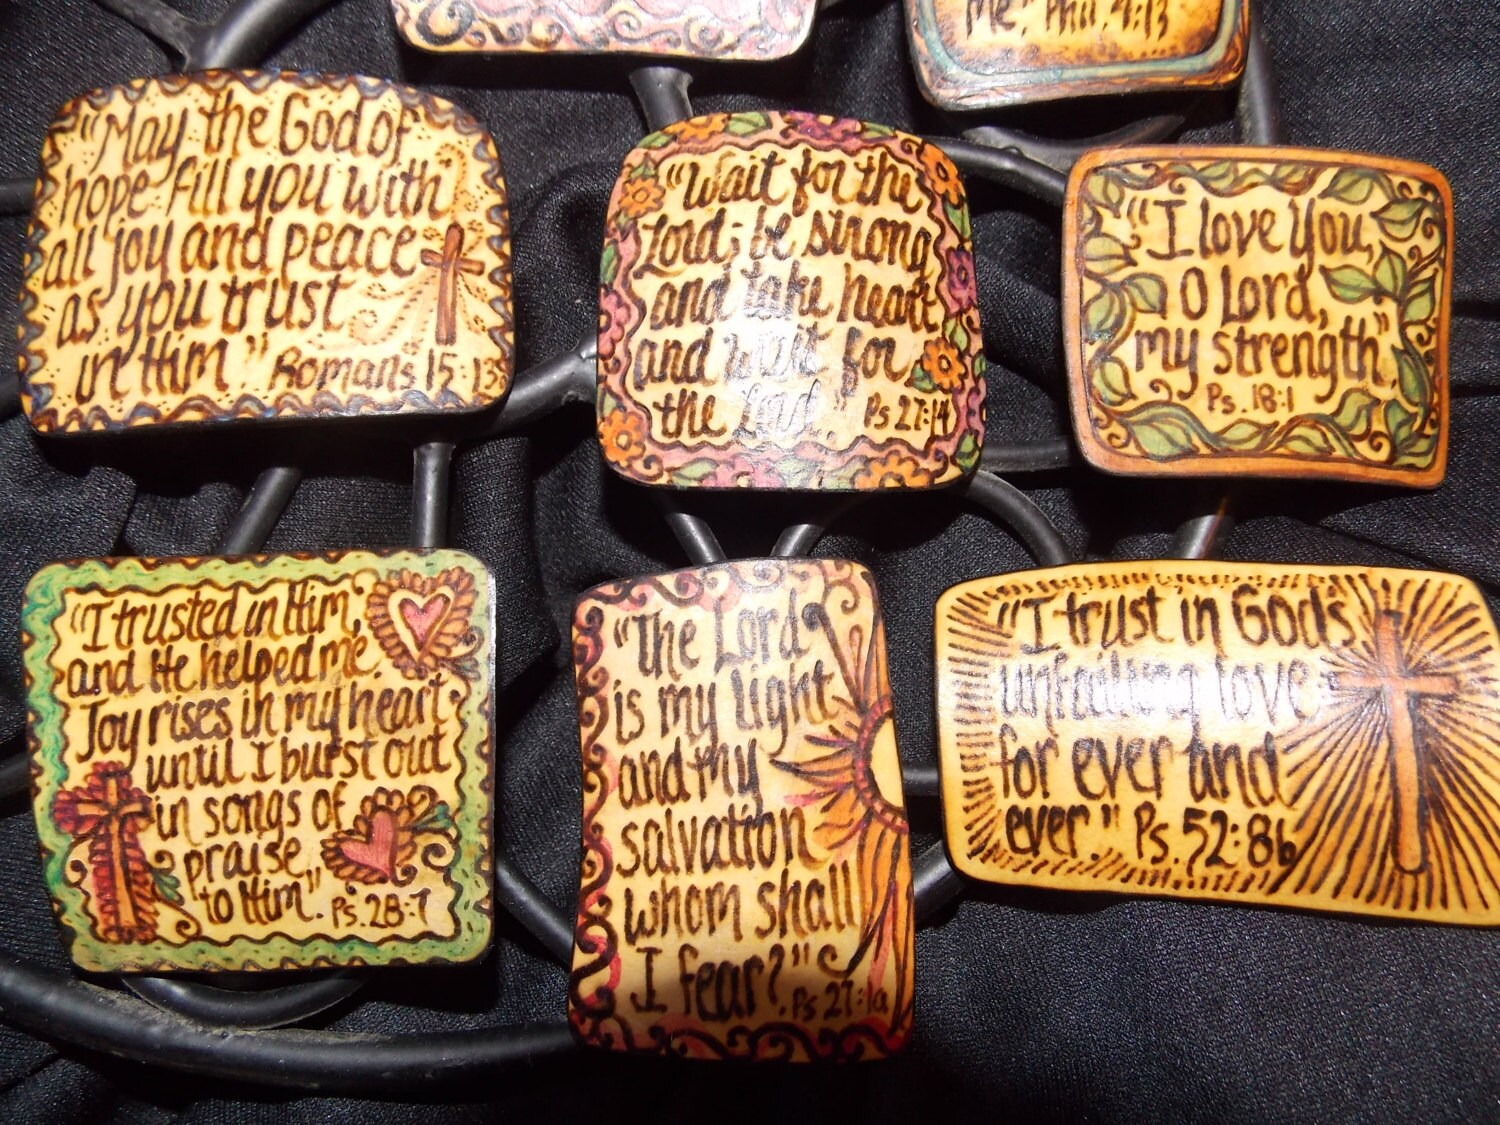 me." Phil. 4:13
"May the God of
hope fill you with
all joy and peace
as you trust
in Him." Romans 15:13
"Wait for the
Lord; be strong
and take heart
and wait for
the Lord." Ps 27:14
"I love You,
O Lord,
my strength."
Ps. 18:1
"I trusted in Him,
and He helped me.
Joy rises in my heart
until I burst out
in songs of
praise
to Him." Ps. 28:7
"The Lord
is my light
and my
salvation
whom shall
I fear?" Ps 27:1a
"I trust in God's
unfailing love
for ever and
ever." Ps. 52:8b